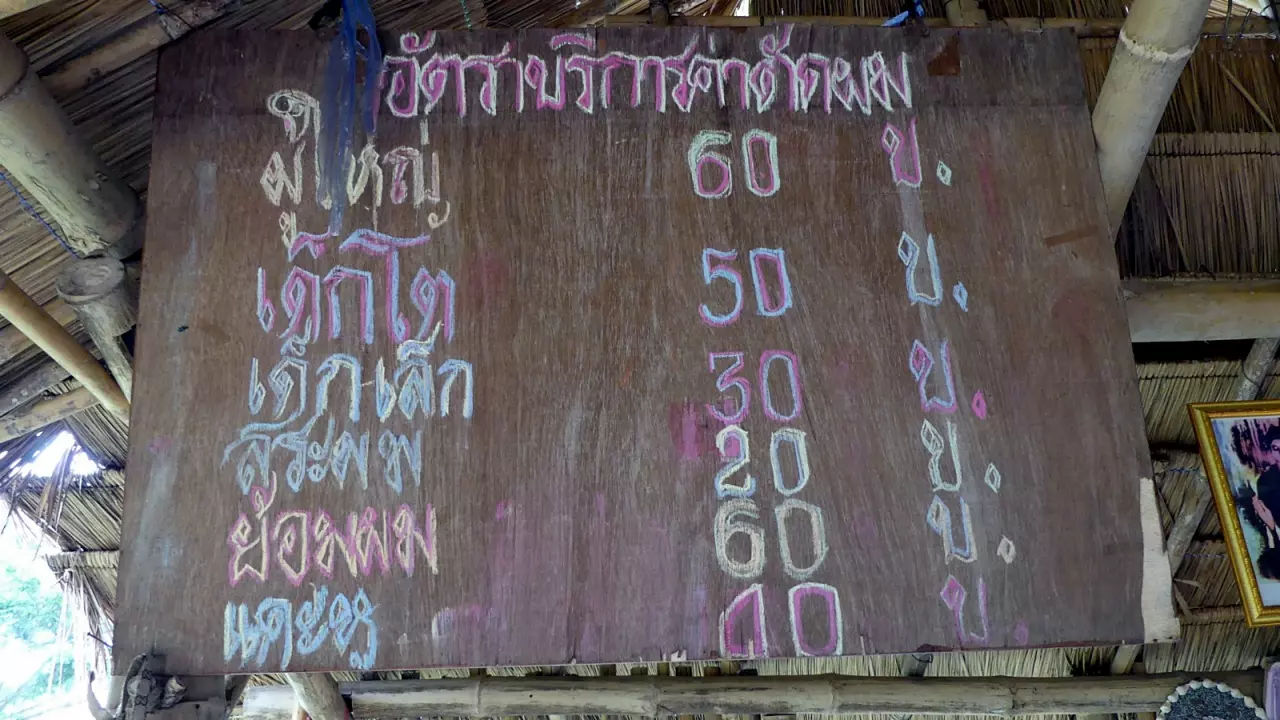 อัตราบริการค่าตัดผม
ผู้ใหญ่ 60 บ.
เด็กโต 50 บ.
เด็กเล็ก 30 บ.
สระผม 20 บ.
ย้อมผม 60 บ.
แคะหู 10 บ.